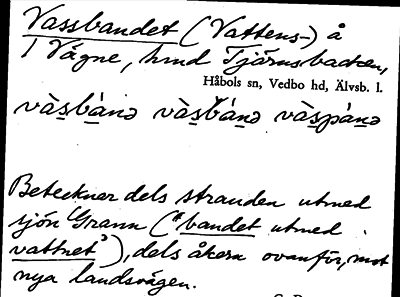 Vassbandet (Vattens-) å
1 Vägne, hmd Tjärnsbacken,
Håbols sn, Vedbo hd, Älvsb. l.
vàsbànə vàsbánə vàspànə
Betecknar dels stranden utmed
sjön Grann ("bandet utmed
vattnet"), dels åkern ovanför, mot
nya landsvägen.